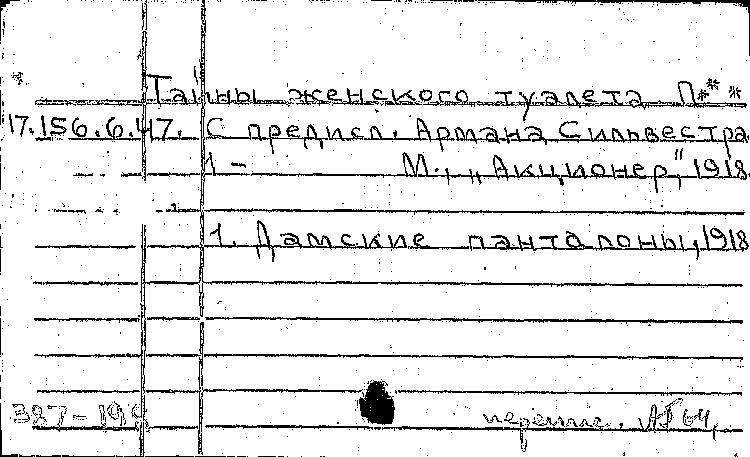 Тайны женского туалета П***
17.156.6.47. С предисл. Армана Сильвестра
1 - М., „Акционер", 1918.
1. Дамские панталоны, 1918
387-198
перепис.